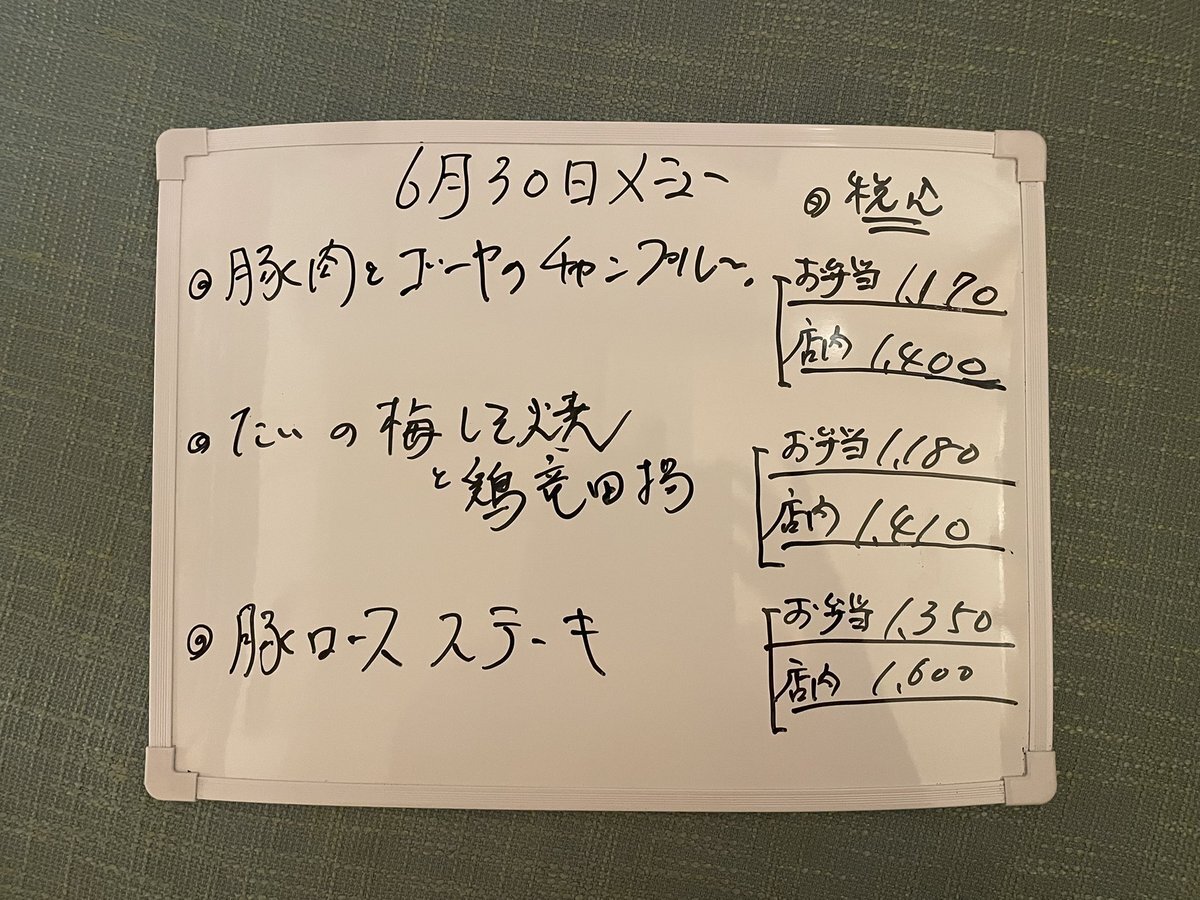 6月30日メニュー
◎税込
◎豚肉とゴーヤのチャンプルー。
お弁当 1,170
店内 1,400
◎たいの梅しそ焼
と鶏竜田揚
お弁当 1,180
店内 1,410
◎豚ロースステーキ
お弁当 1,350
店内 1,600